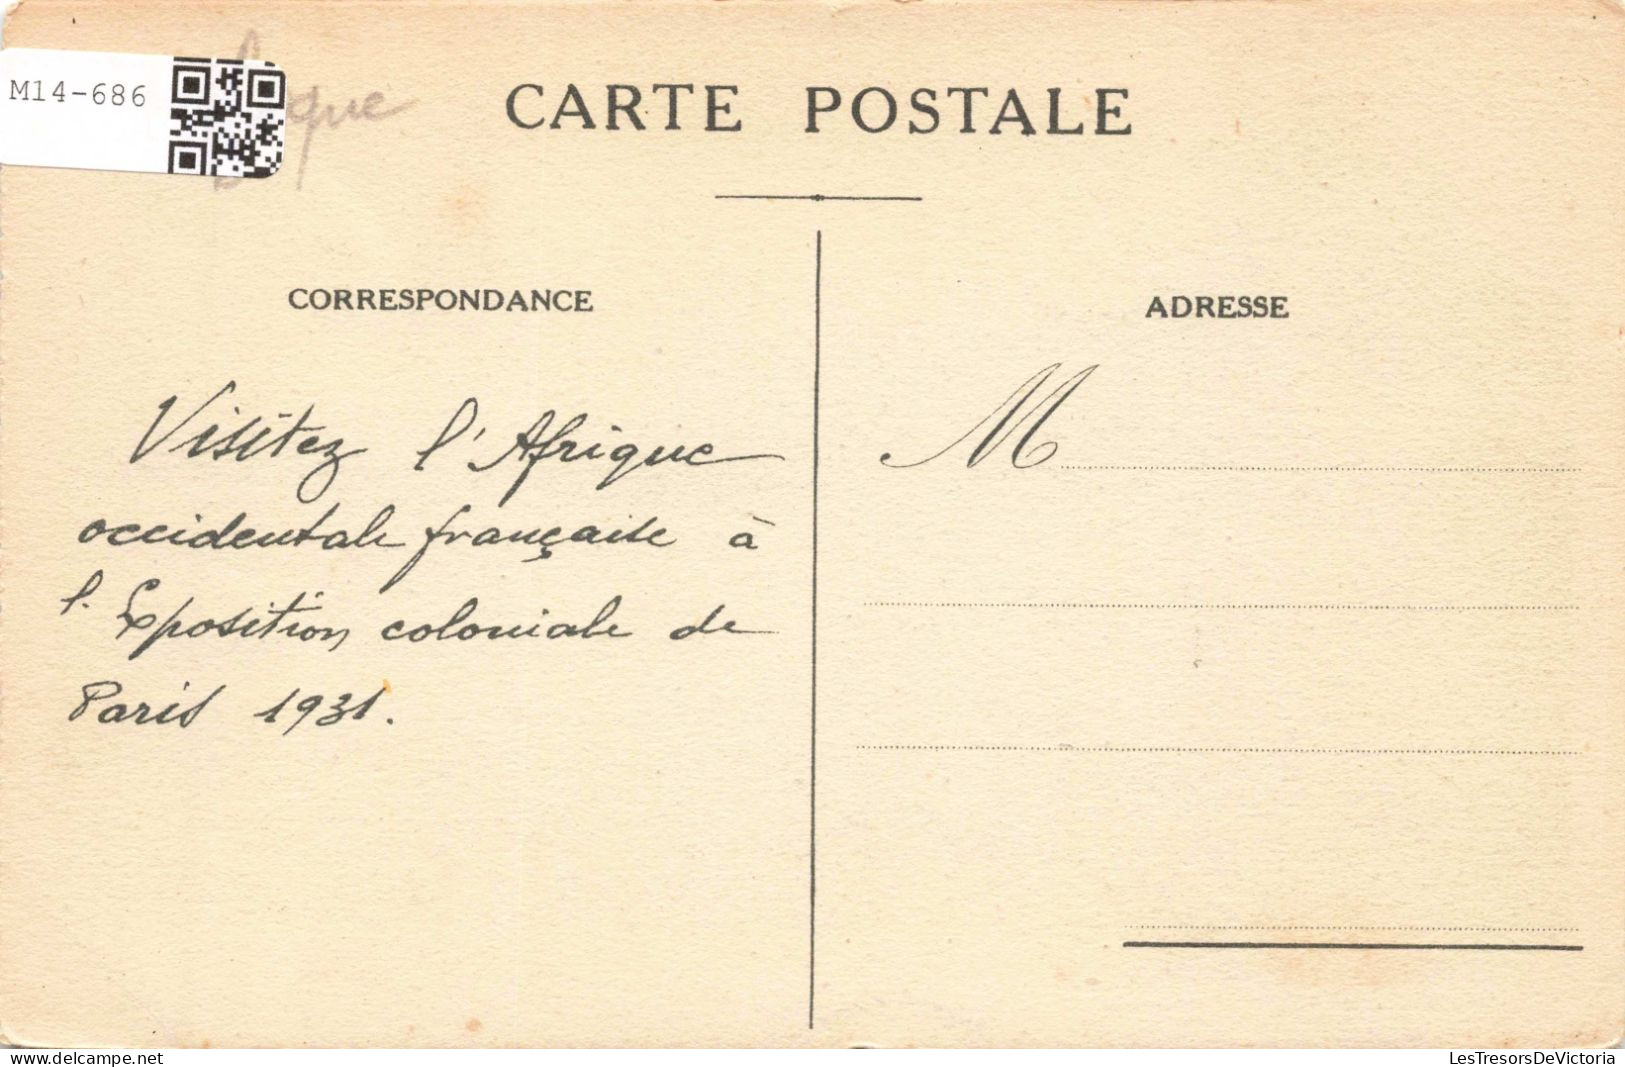 M14-686
CARTE POSTALE
CORRESPONDANCE
ADRESSE
Visitez l'Afrique
occidentale française à
l'Exposition coloniale de
Paris 1931.
M
delcampe.net
LesTresorsDeVictoria